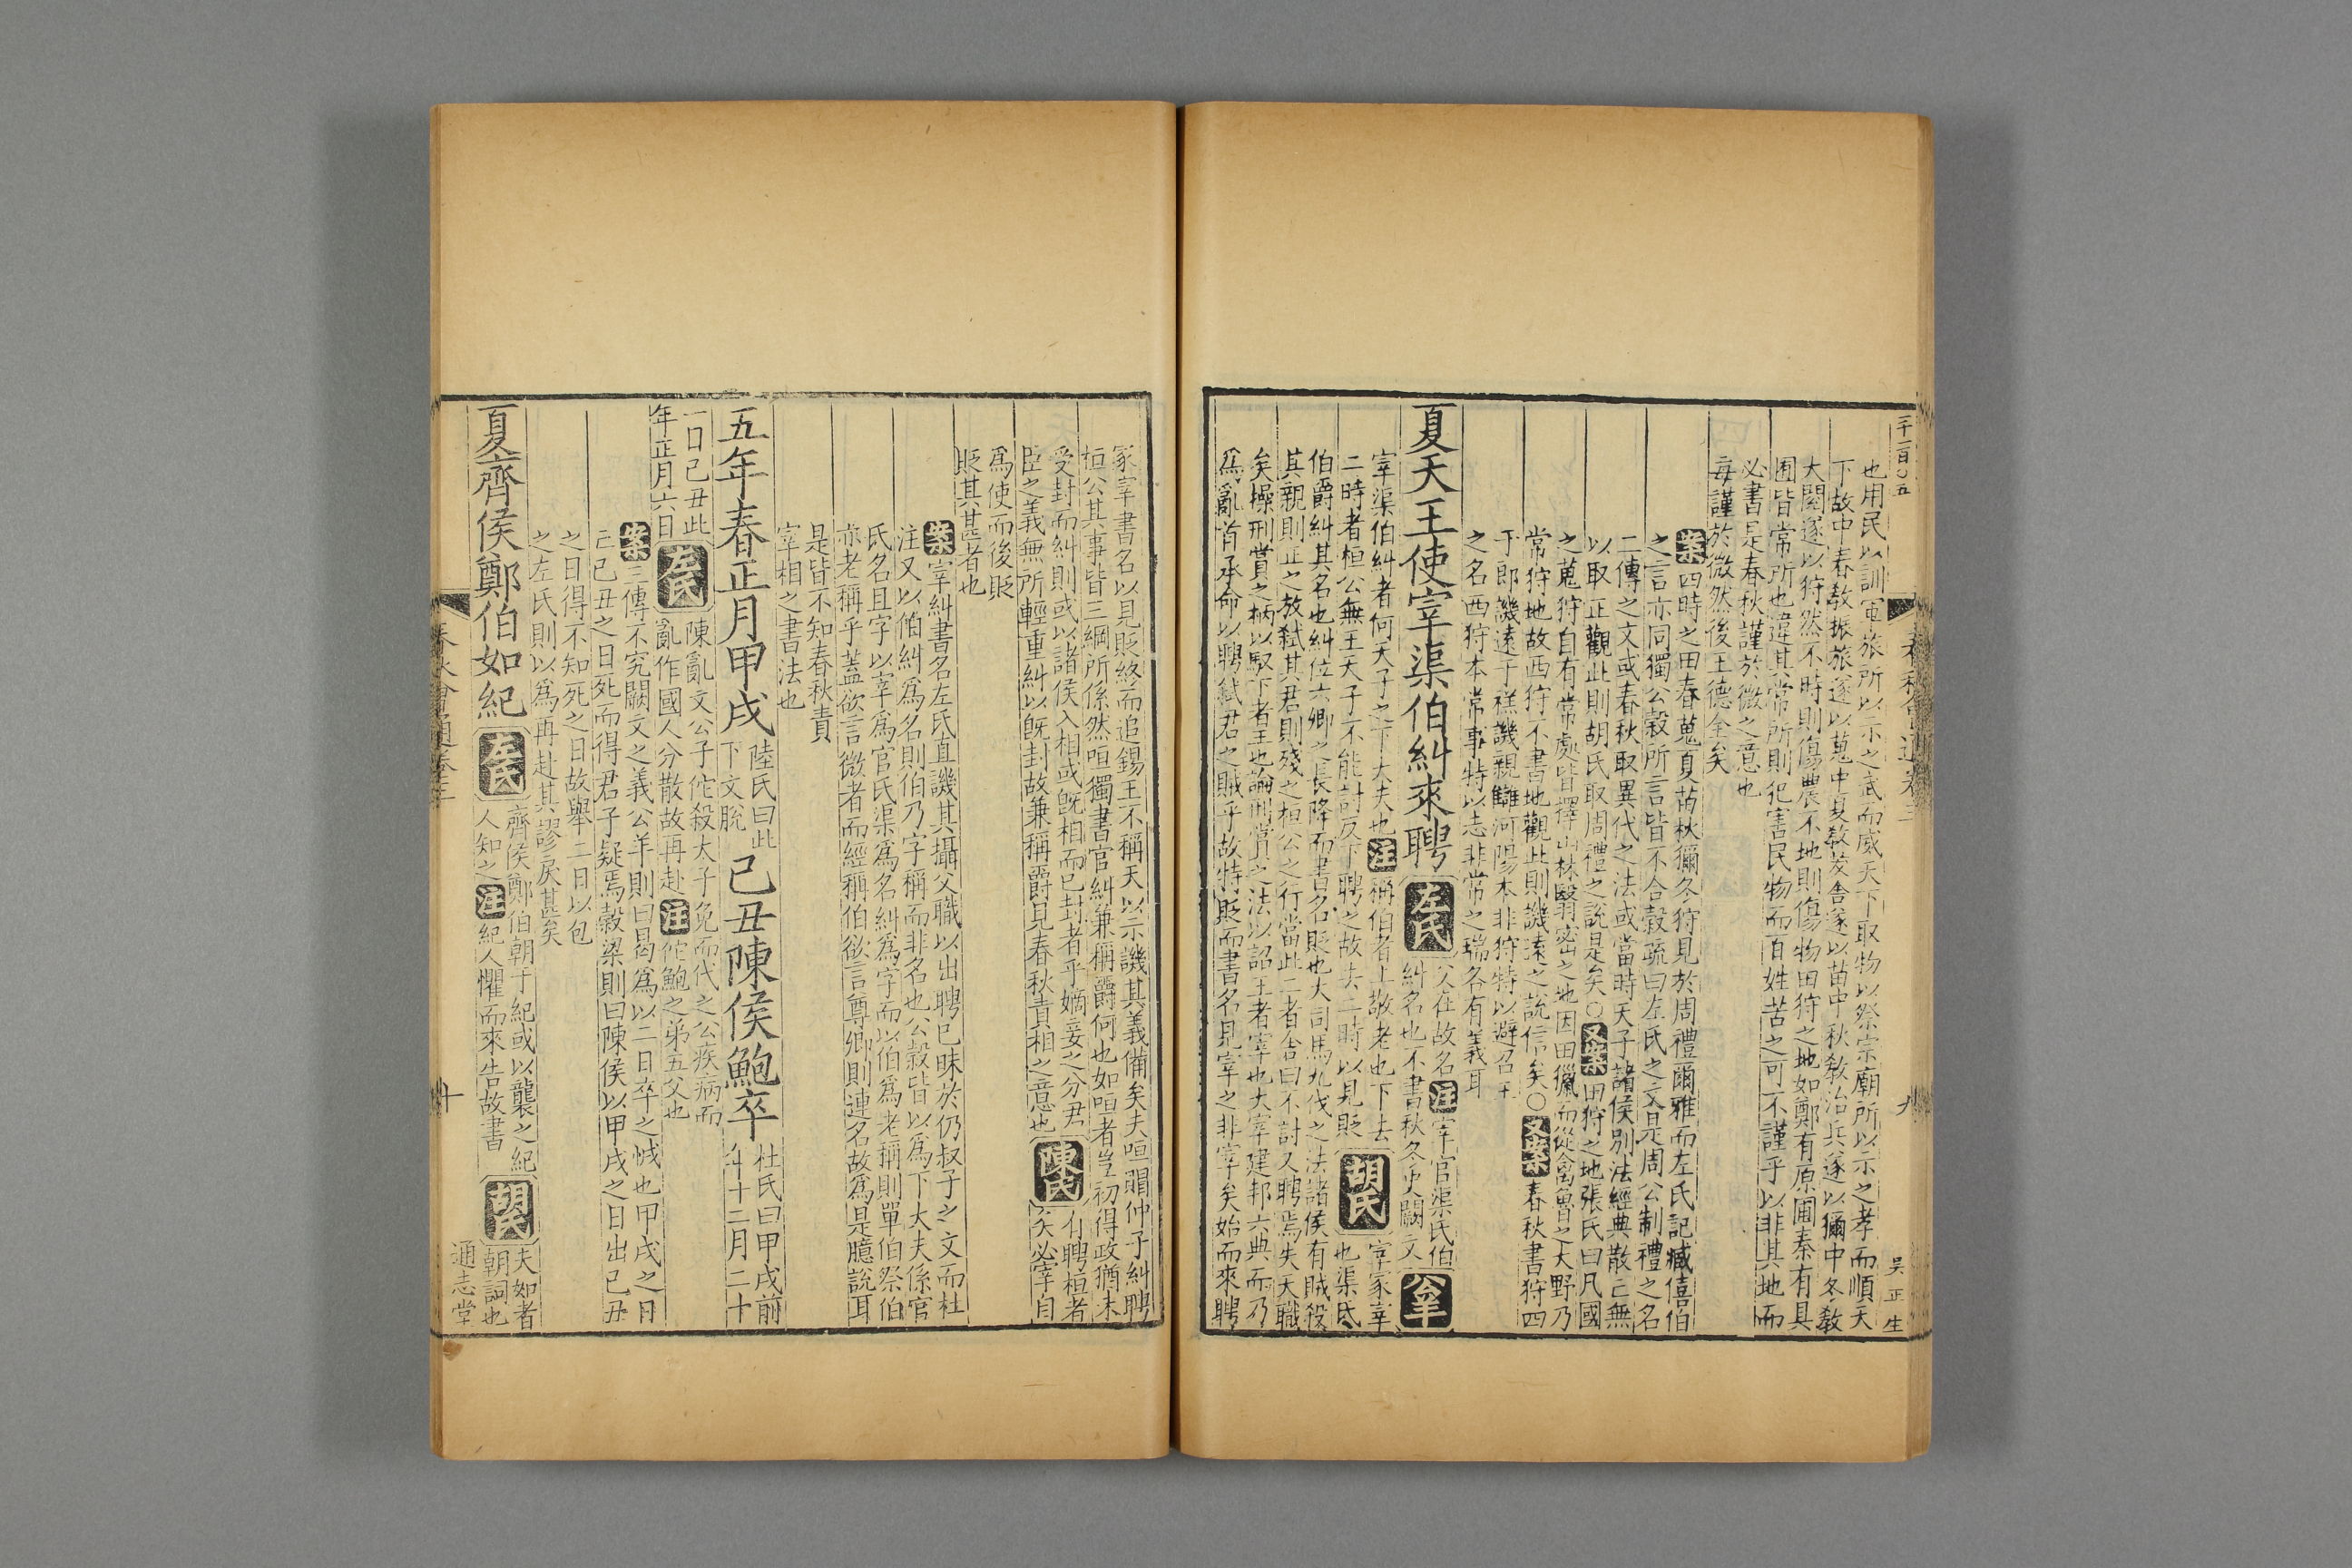 二千一百〇五
春秋會通卷三
九
吳正生
也用民以訓軍旅所以示之武而威天下取物以祭宗廟所以示之孝而順天
下故中春敎振旅遂以蒐中夏敎茇舍遂以苗中秋敎治兵遂以獮中冬敎
大閱遂以狩然不時則傷農不地則傷物田狩之地如鄭有原圃秦有具
囿皆常所也違其常所則犯害民物而百姓苦之可不謹乎以非其地而
必書是春秋謹於微之意也
每謹於微然後王德全矣
案四時之田春蒐夏苗秋獮冬狩見於周禮爾雅而左氏記臧僖伯
之言亦同獨公穀所言皆不合穀疏曰左氏之文是周公制禮之名
二傳之文或春秋取異代之法或當時天子諸侯別法經典散亡無
以取正觀此則胡氏取周禮之說是矣〇又案田狩之地張氏曰凡國
之蒐狩自有常處皆擇山林翳密之地因田獵而從禽魯之大野乃
常狩地故西狩不書地觀此則譏遠之說信矣〇又案春秋書狩四
于郎譏遠于禚譏親讎河陽本非狩特以避召王
之名西狩本常事特以志非常之瑞各有義耳
夏天王使宰渠伯糾來聘
左氏
父在故名注宰官渠氏伯
糾名也不書秋冬史闕文
公羊
宰渠伯糾者何天子之下大夫也注稱伯者上敬老也下去
二時者桓公無王天子不能討反下聘之故去二時以見貶
胡氏
宰冢宰
也渠氏
伯爵糾其名也糾位六卿之長降而書名貶也大司馬九伐之法諸侯有賊殺
其親則正之放弒其君則殘之桓公之行當此二者舍曰不討又聘焉失天職
矣操刑賞之柄以馭下者王也論刑賞之法以詔王者宰也大宰建邦六典而乃
爲亂首承命以聘弒君之賊乎故特貶而書名見宰之非宰矣始而來聘
冢宰書名以見貶終而追錫王不稱天以示譏其義備矣夫咺賵仲子糾聘
桓公其事皆三綱所係然咺獨書官糾兼稱爵何也如咺者豈初得政猶未
受封而糾則或以諸侯入相或旣相而已封者乎嫡妾之分君
臣之義無所輕重糾以旣封故兼稱爵見春秋責相之意也
陳氏
有聘桓者
矣必宰自
爲使而後貶
貶其甚者也
案宰糾書名左氏直譏其攝父職以出聘已昧於仍叔子之文而杜
注又以伯糾爲名則伯乃字稱而非名也公穀皆以爲下大夫係官
氏名且字以宰爲官氏渠爲名糾爲字而以伯爲老稱則單伯祭伯
亦老稱乎蓋欲言微者而經稱伯欲言尊卿則連名故爲是臆說耳
是皆不知春秋責
宰相之書法也
五年春正月甲戌
陸氏曰此
下文脫
己丑陳侯鮑卒
杜氏曰甲戌前
年十二月二十
一日己丑此
年正月六日
左氏
陳亂文公子佗殺太子免而代之公疾病而
亂作國人分散故再赴注佗鮑之弟五父也
案三傳不究闕文之義公羊則曰曷爲以二日卒之怴也甲戌之日
亡己丑之日死而得君子疑焉穀梁則曰陳侯以甲戌之日出己丑
之日得不知死之日故舉二日以包
之左氏則以爲再赴其謬戾甚矣
夏齊侯鄭伯如紀
左氏
齊侯鄭伯朝于紀或以襲之紀
人知之注紀人懼而來告故書
胡氏
夫如者
朝詞也
春秋會通卷三
十
通志堂